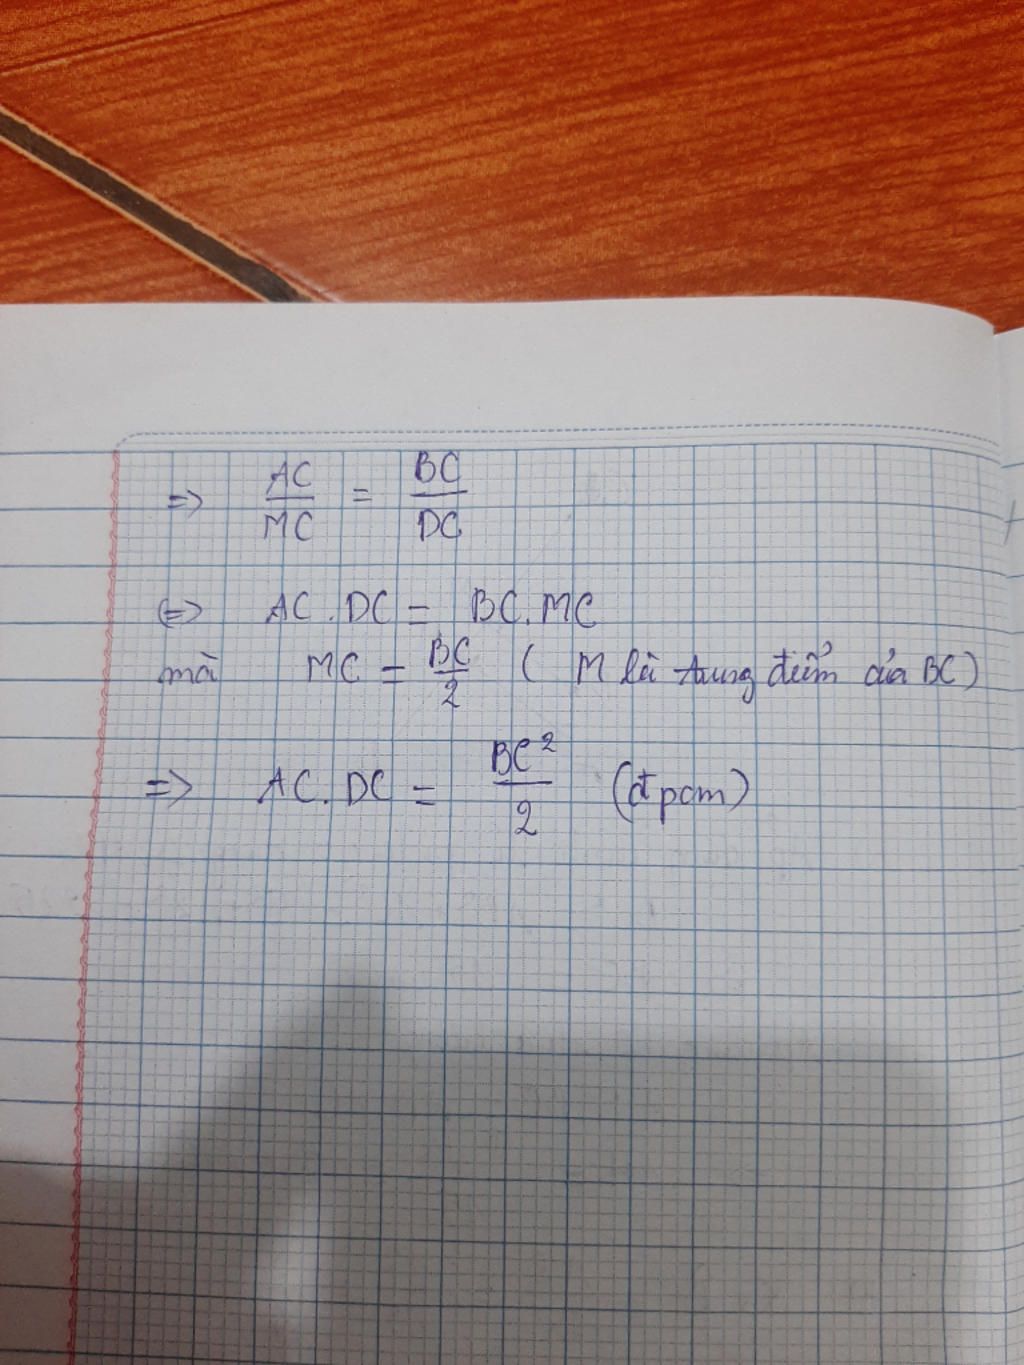 => AC/MC = BC/DC
<=> AC.DC = BC.MC
mà MC = BC/2 ( M là trung điểm của BC)
=> AC.DC = BC²/2 (đpcm)